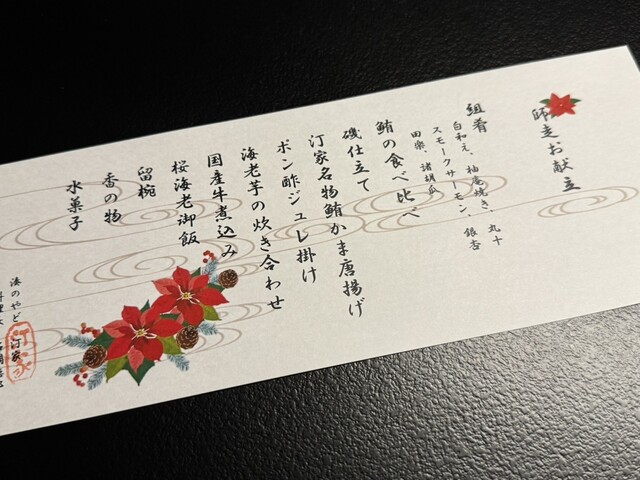 師走お献立
組肴
白和え、柚庵焼き、丸十
スモークサーモン、銀杏
田楽、諸胡瓜
鮪の食べ比べ
磯仕立て
汀家名物鮪かま唐揚げ
ポン酢ジュレ掛け
海老芋の炊き合わせ
国産牛煮込み
桜海老御飯
留椀
香の物
水菓子
湊のやど 汀家